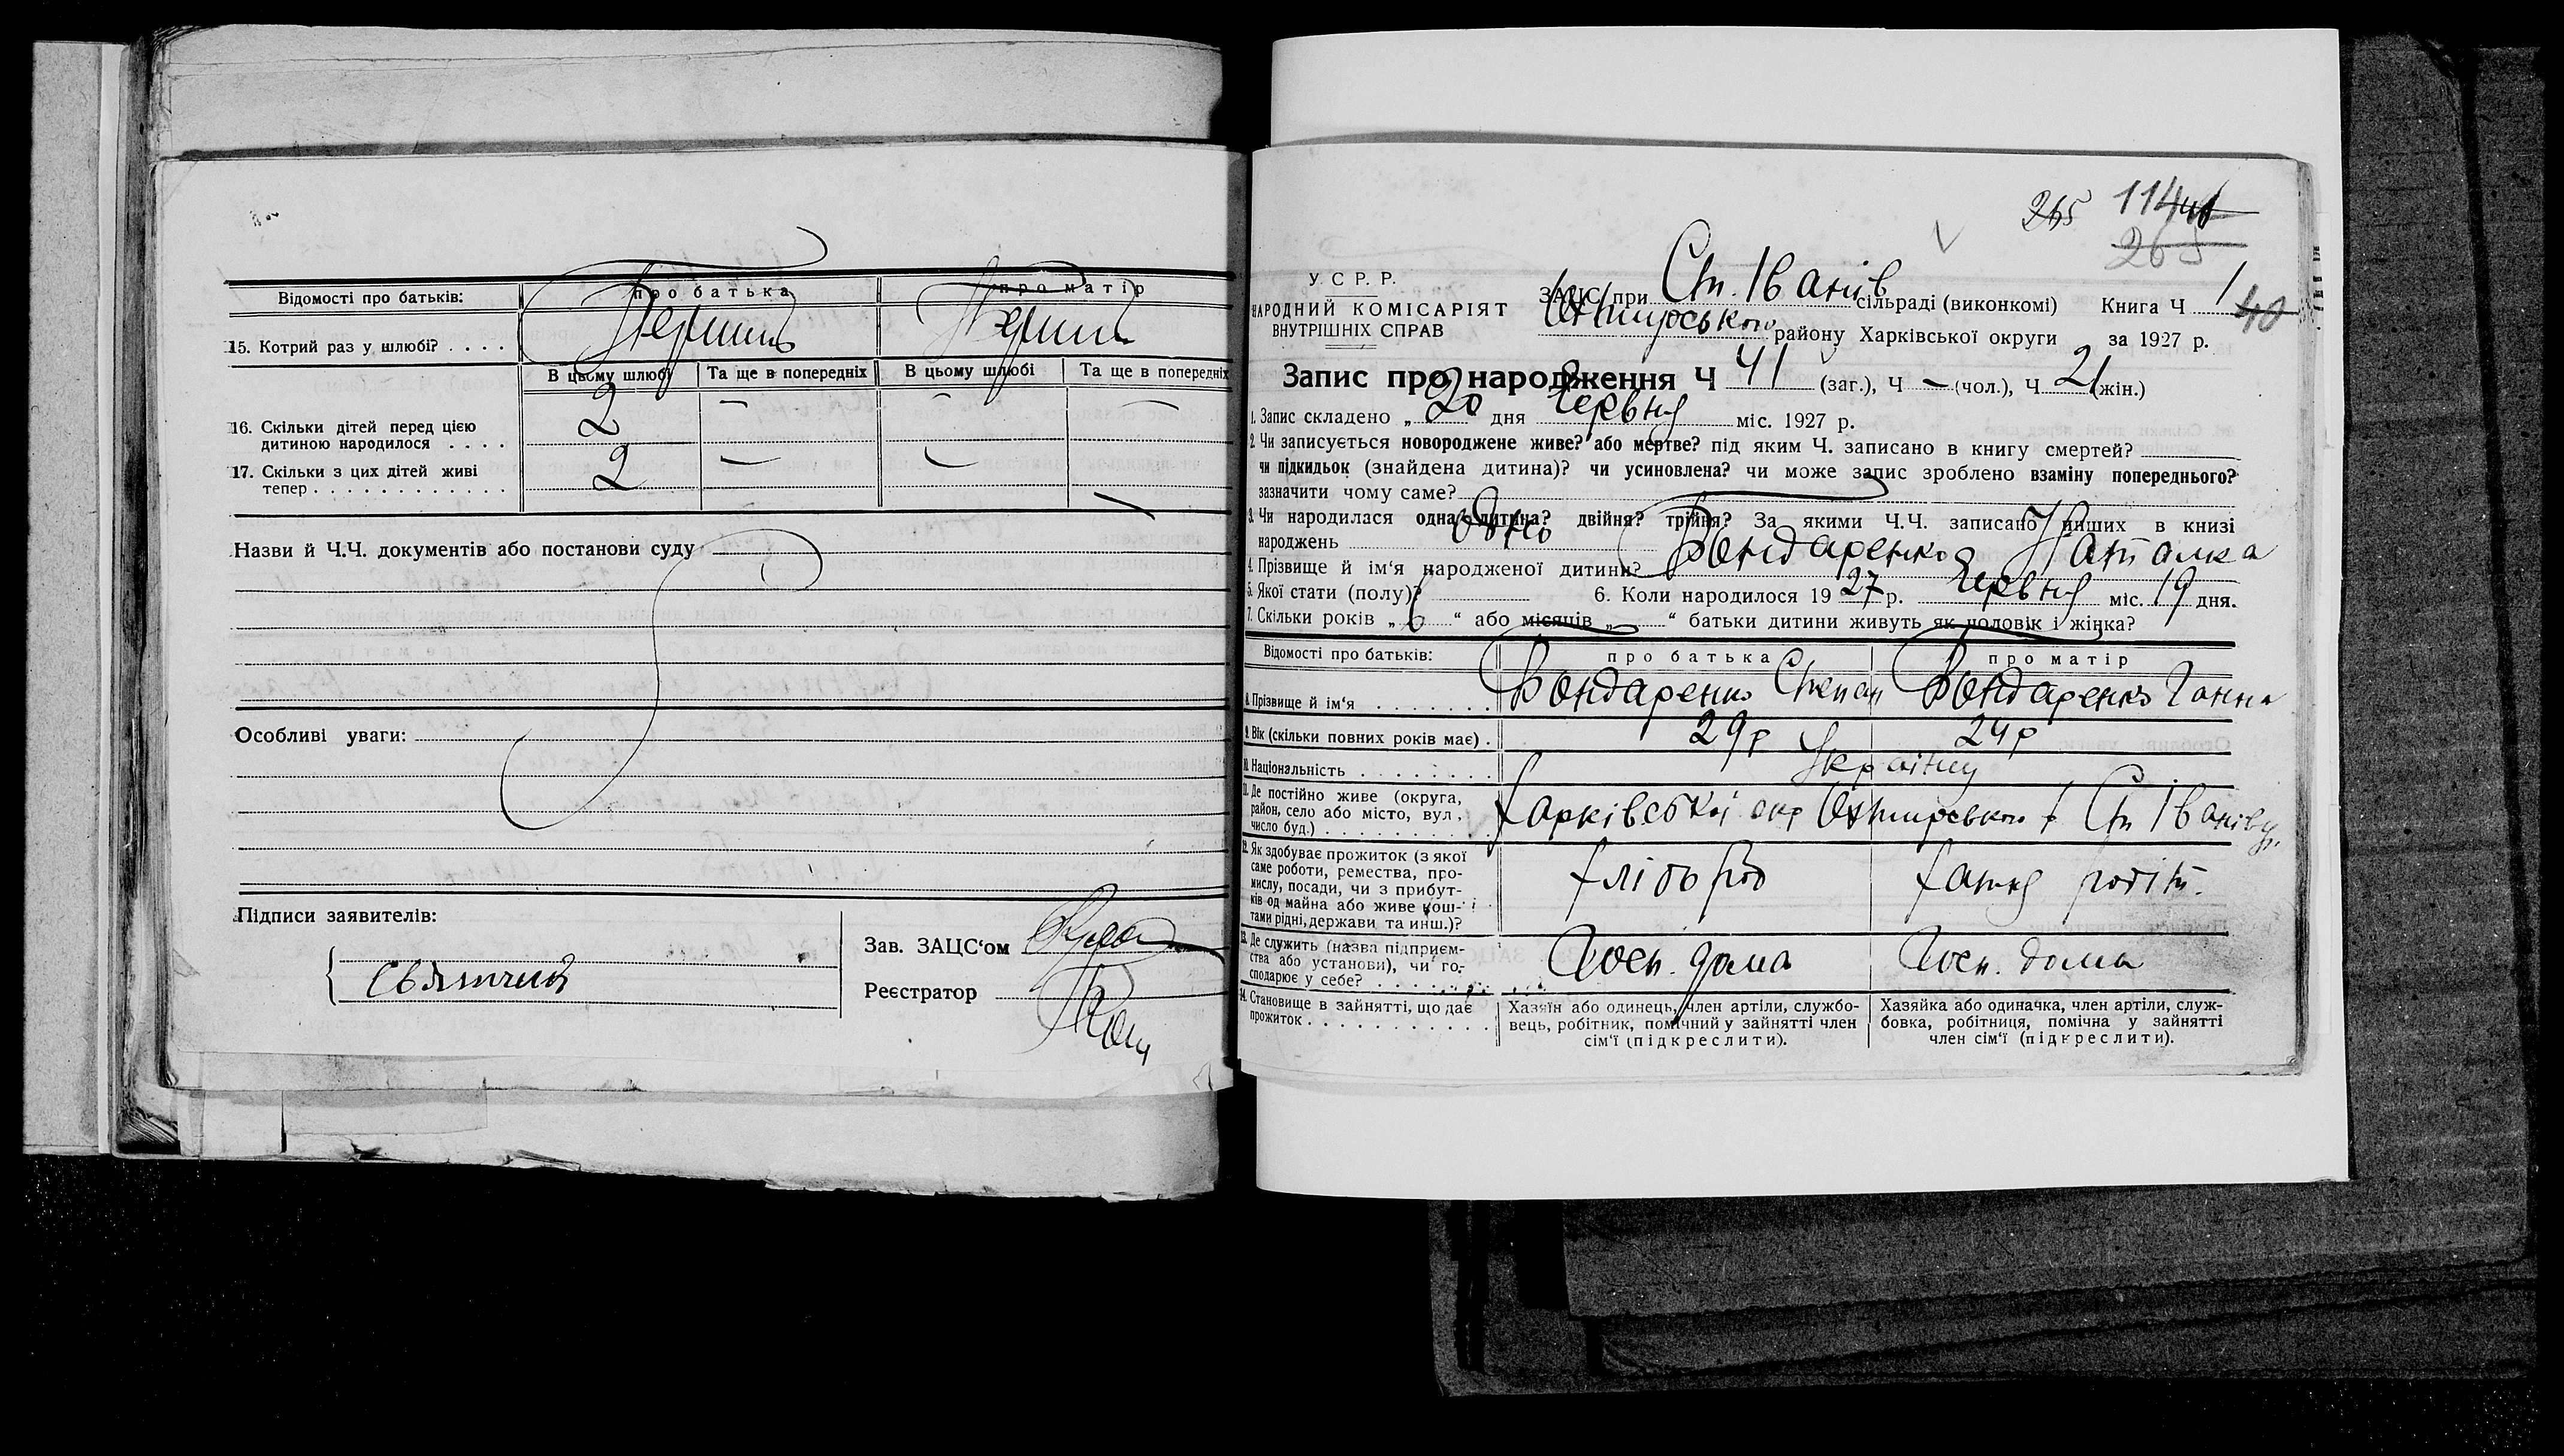 Відомості про батьків: про батька про матір
15. Котрий раз у шлюбі? . . . . Перший Перший
В цьому шлюбі Та ще в попередніх В цьому шлюбі Та ще в попередніх
16. Скільки дітей перед цією
дитиною народилося . . . . 2 — — —
17. Скільки з цих дітей живі
тепер . . . . . . . . . . . . 2 — — —
Назви й Ч.Ч. документів або постанови суду
Особливі уваги:
Підписи заявителів:
Зав. ЗАЦС‘ом
Реєстратор
265 114
265
У. С. Р. Р.
НАРОДНИЙ КОМІСАРІЯТ
ВНУТРІШНІХ СПРАВ
ЗАЦС при Ст. Іванів сільраді (виконкомі) Книга Ч 1 40
Охтирського району Харківської округи за 1927 р.
Запис про народження Ч 41 (заг.), Ч — (чол.), Ч 21 (жін.)
1. Запис складено „ 20 дня Червня міс. 1927 р.
2. Чи записується новороджене живе? або мертве? під яким Ч. записано в книгу смертей?
чи підкидьок (знайдена дитина)? чи усиновлена? чи може запис зроблено взаміну попереднього?
зазначити чому саме?
3. Чи народилася одна дитина? двійня? трійня? За якими Ч.Ч. записано инших в книзі
народжень Одно
4. Прізвище й ім‘я народженої дитини? Бондаренко Наталка
5. Якої стати (полу)? 6. Коли народилося 1927 р. Червня міс. 19 дня.
7. Скільки років „ 6 “ або місяців „ “ батьки дитини живуть як чоловік і жінка?
Відомості про батьків: про батька про матір
8. Прізвище й ім‘я . . . . . . . Бондаренко Степан Бондаренко Ганна
9. Вік (скільки повних років має) . 29 р 24 р
10. Національність . . . . . . . . Українці
11. Де постійно живе (округа,
район, село або місто, вул.,
число буд.) . . . . . . . . . . Харківської окр Охтирського р Ст Іванівц.
12. Як здобуває прожиток (з якої
саме роботи, ремества, про-
мислу, посади, чи з прибут-
ків од майна або живе кош-
тами рідні, держави та инш.)? Хлібороб Хатня робіт.
13. Де служить (назва підприєм-
ства або установи), чи го-
сподарює у себе? . . . . . . Госп. дома Госп. дома
14. Становище в зайнятті, що дає
прожиток . . . . . . . . . . .
Хазяїн або одинець, член артіли, службо-
вець, робітник, помічний у зайнятті член
сім‘ї (підкреслити).
Хазяйка або одиначка, член артіли, служ-
бовка, робітниця, помічна у зайнятті
член сім‘ї (підкреслити).